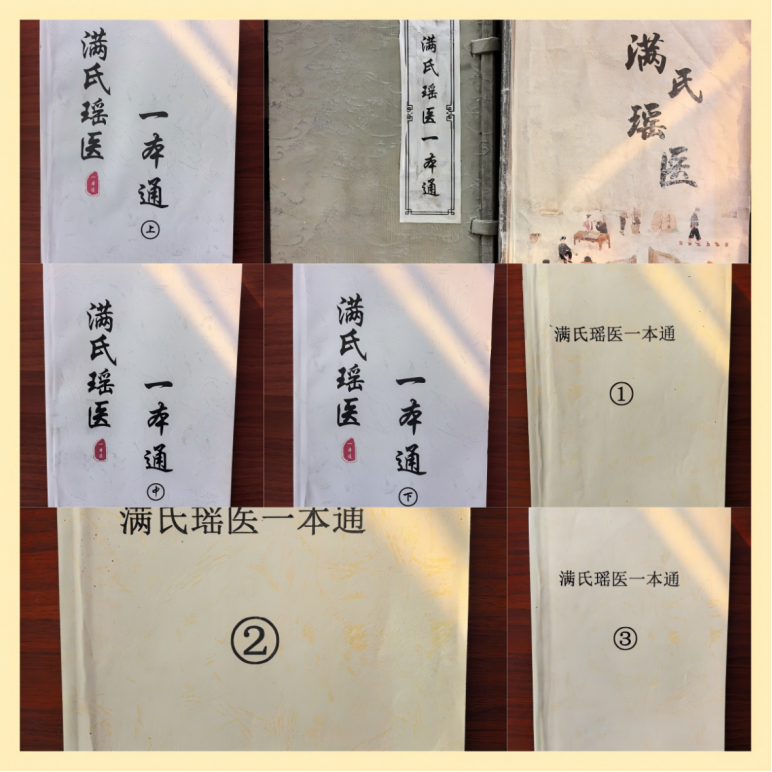 满氏瑶医
一本通
上
满氏瑶医一本通
满氏瑶医
满氏瑶医
一本通
中
满氏瑶医
一本通
下
满氏瑶医一本通
①
满氏瑶医一本通
②
满氏瑶医一本通
③